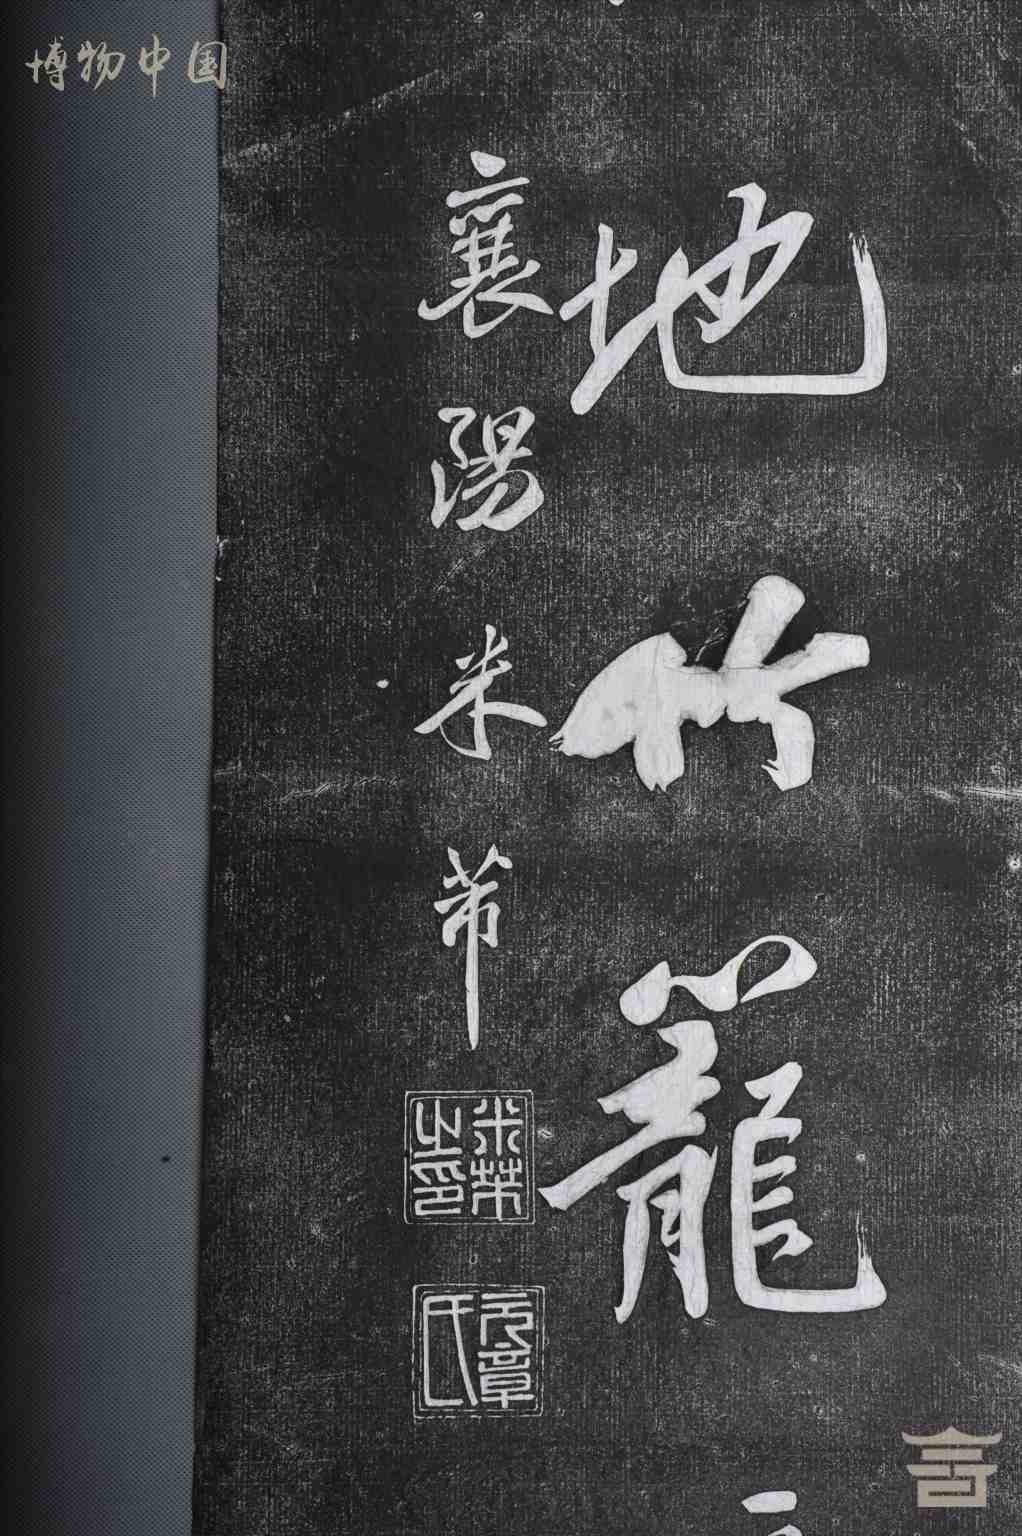 博物中国
地竹籠
襄陽米芾
米芾之印
元章氏